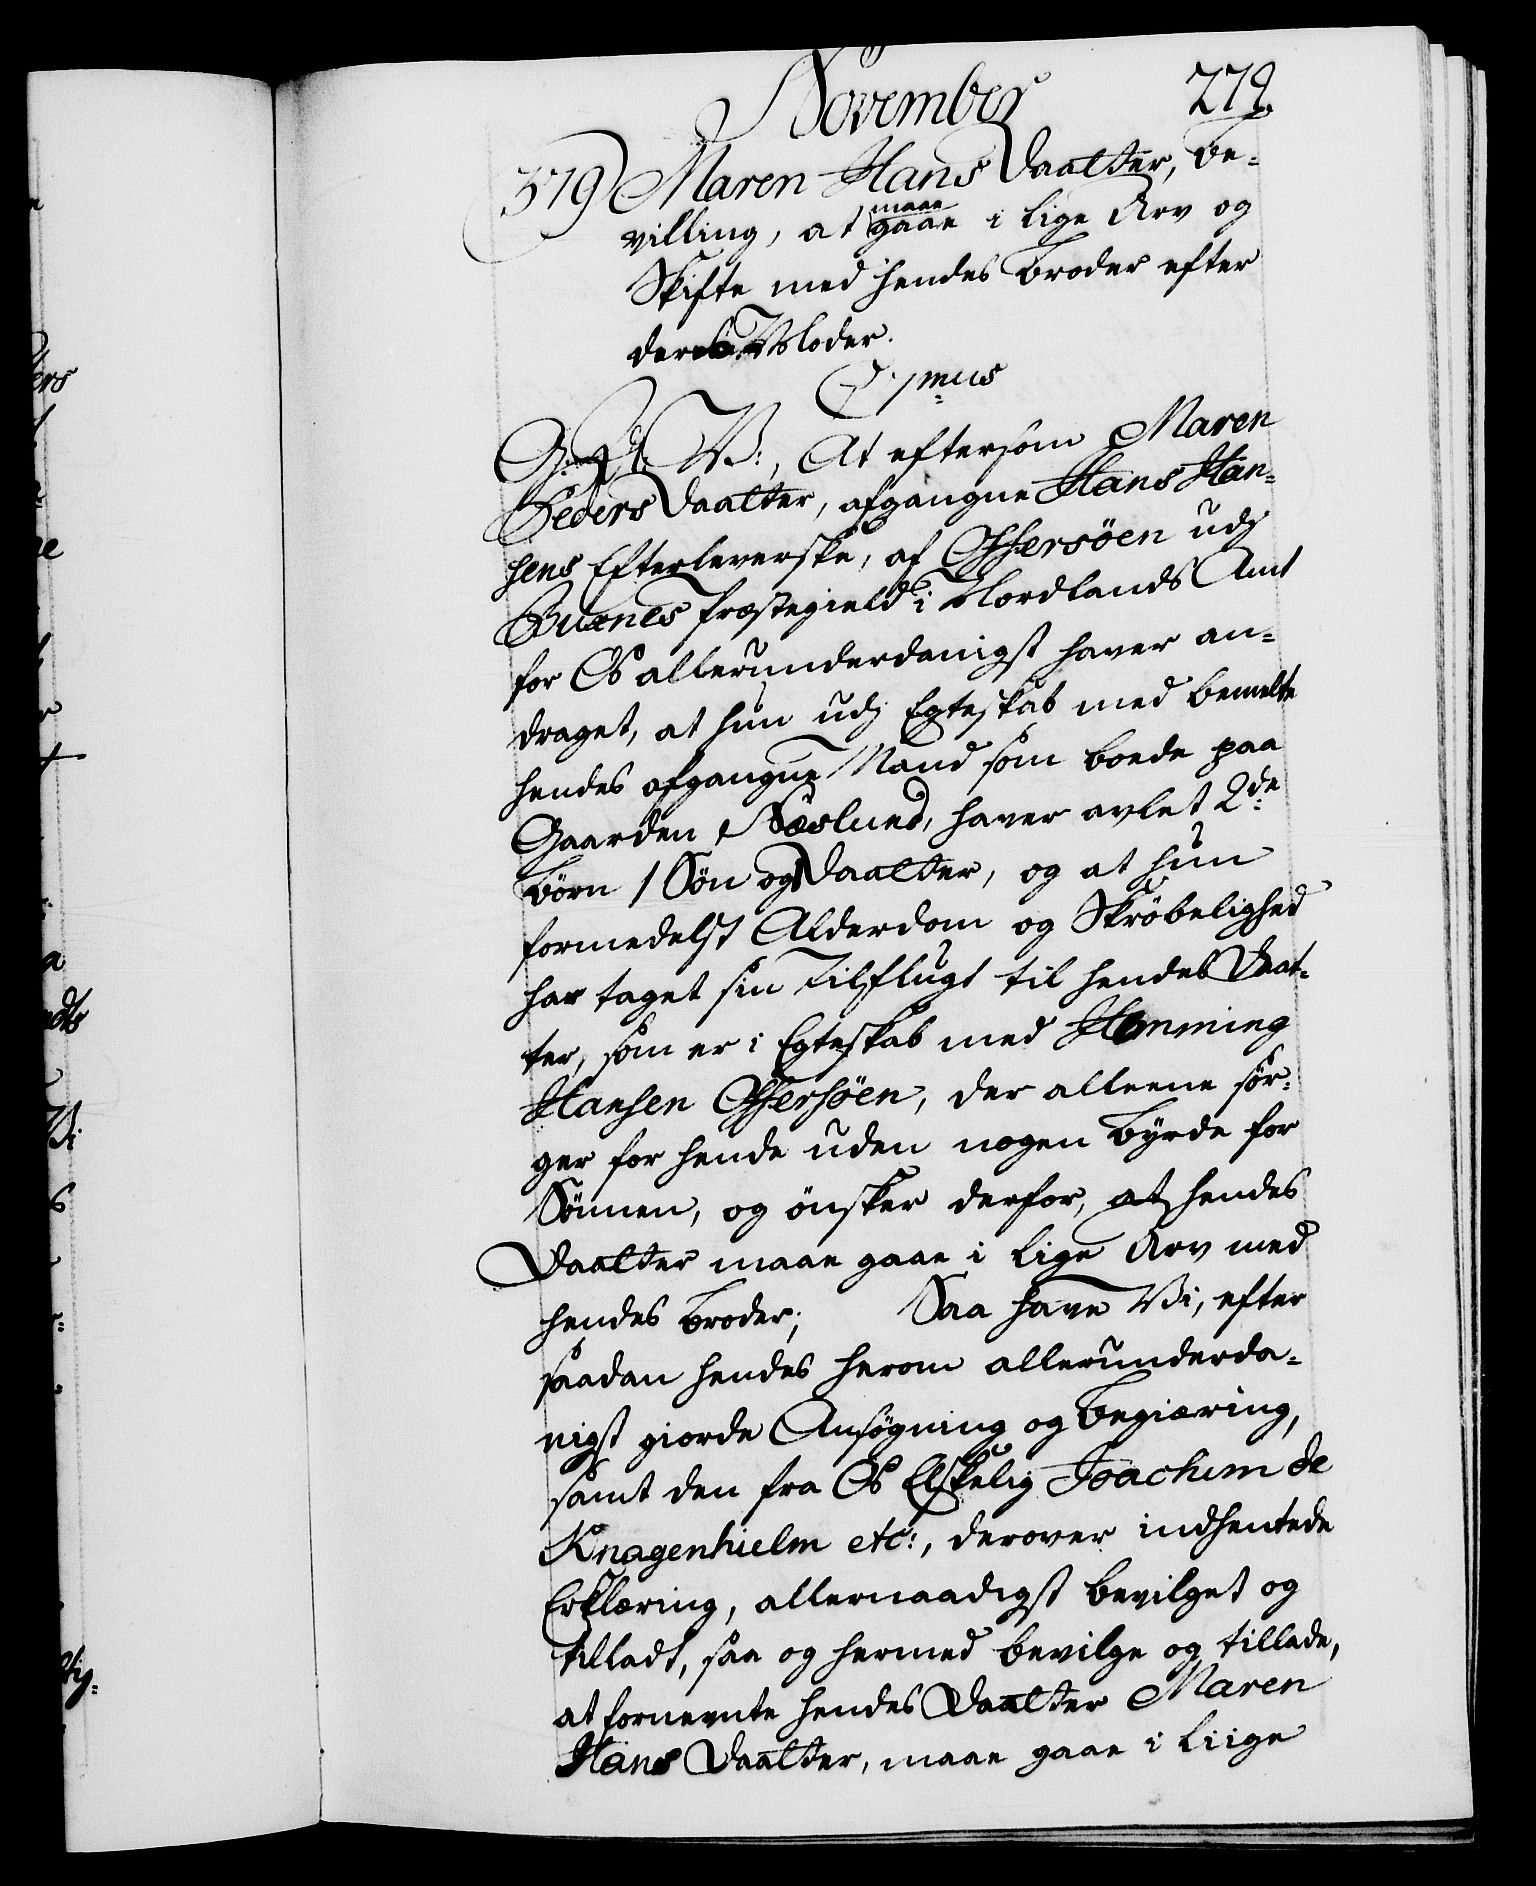 November 279.
579) Maren Hans Daatter, Be-
villing, at maae gaae i lige Arv og
Skifte med hendes Broder efter
deres Moder.
C. 7mus
G: A: V:, At eftersom Maren
Peders Daatter, afgangne Hans Han-
sens Efterleverske, af Offersöen udj
Buxnes Præstegield i Nordlands Amt
for Os allerunderdanigst haver an-
draget, at hun udj Egteskab med bemelte
hendes afgangne Mand som boede paa
Gaarden Næslund, haver avlet 2de
Börn 1 Sön og 1 Daatter, og at hun
formedelst Alderdom og Skröbelighed
har taget sin Tilflugt til hendes Daat-
ter, som er i Egteskab med Henning
Hansen Offersöen, der alleene sör-
ger for hende uden nogen Byrde for
Sönnen, og önsker derfor, at hendes
Daatter maae gaae i lige Arv med
hendes Broder; Saa have Vi, efter
saadan hendes herom allerunderda-
nigst giorde Ansögning og Begiæring,
samt den fra Os Elskelig Joachim de
Knagenhielm etc:, derover indhentede
Erklæring, allernaadigst bevilget og
tilladt, saa og hermed bevilge og tillade,
at fornevnte hendes Daatter Maren
Hans Daatter, maae gaae i liige